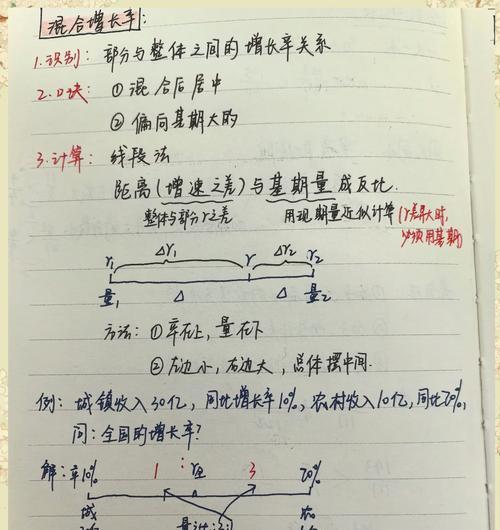 混合增长率:
1.识别: 部分与整体之间的增长率关系
2.口诀: ①混合后居中
②偏向基期大的
3.计算: 线段法
距离(增速之差)与基期量成反比.
整体与部分r之差 用现期量近似计算(r差异大时,
必须用基期)
Δr₁ Δr₂
r₁ r r₂
量₁ Δ Δ 量₂
方法: ①率在上,量在下
②左边小,右边大,总体摆中间.
例: 城镇收入30亿,同比增长率10%,农村收入10亿,同比20%,
问:全国的增长率?
解: 率10% 1 : 3 20%
城 农